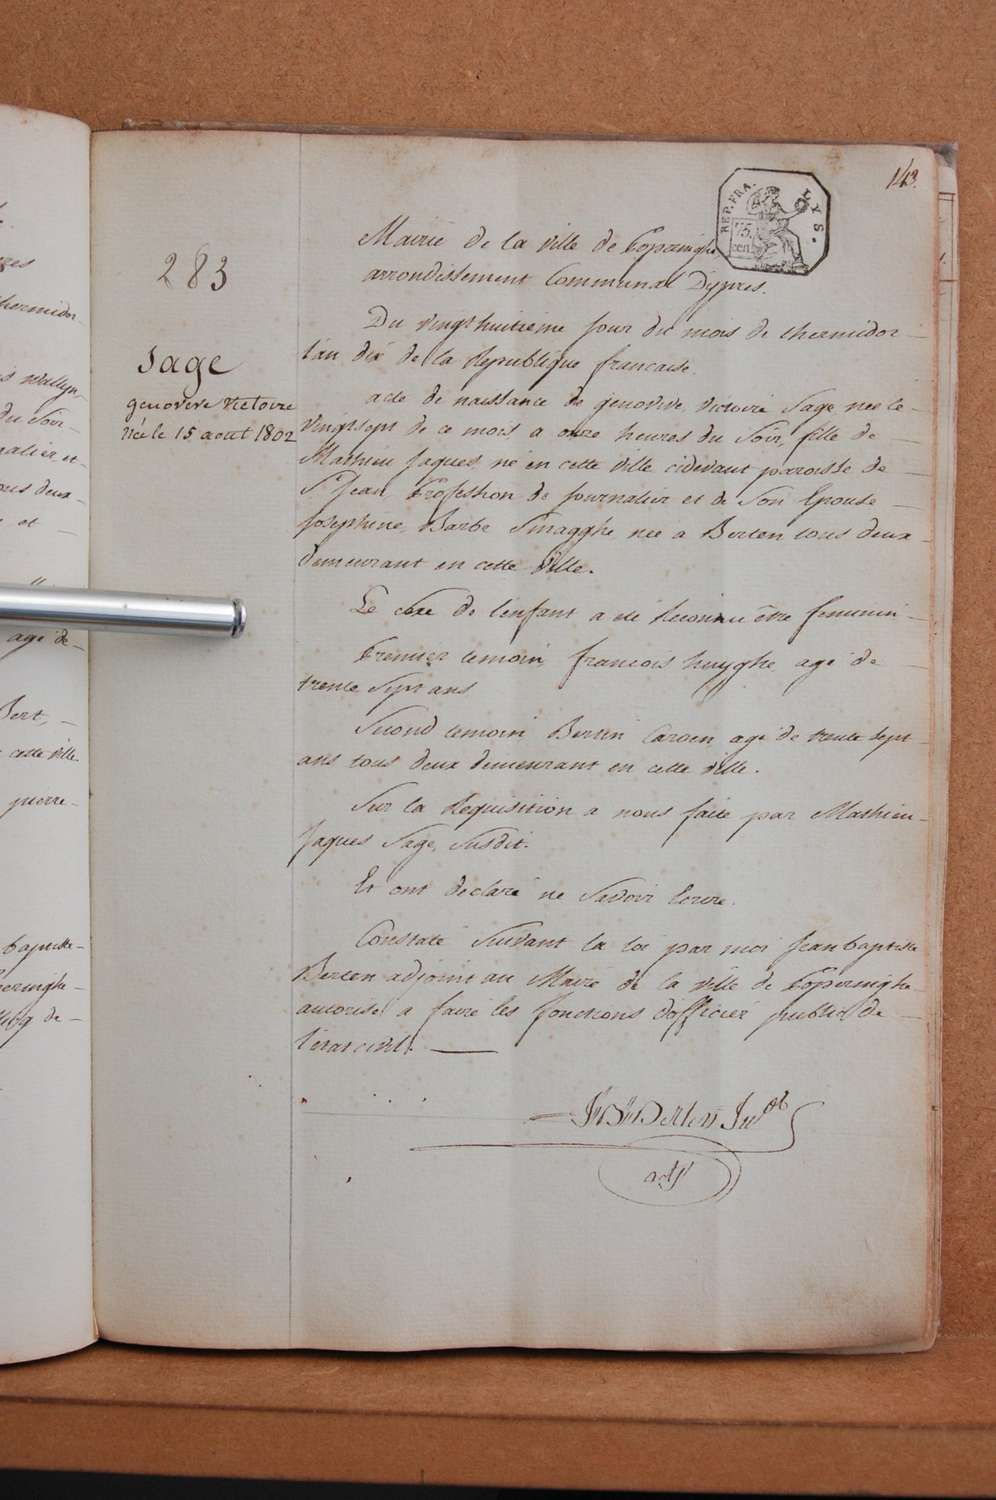 143.
REP. FRA.
LYS.
75.
cen.
283
Mairie de la ville de Poperinghe
arrondissement Communal Dÿpres.
Du vingthuitieme jour du mois de thermidor
l'an dix de la Republique francaise.
Sage
genoveve victoire
née le 15 aout 1802
acte de naissance de genovive victoire Sage, née le
vingtsept de ce mois a onze heures du Soir, fille de
Mathieu Jaques, né en cette ville cidevant paroisse de
St Jean, Profession de journalier et de Son Epouse
Josephine Barbe Smagghe née a Berten tous deux
demeurant en cette ville.
Le sexe de l'enfant a eté Reconnu être feminin
Premier temoin, francois huyghe, agé de
trente Sept ans
Second temoin Bertin Caroen agé de trente sept
ans tous deux demeurant en cette ville.
Sur la Requisition a nous faite par Mathieu
Jaques Sage, Susdit.
Et ont declaré ne Savoir Ecrire.
Constaté Suivant la loi par moi Jean baptiste
Berten adjoint au Maire de la ville de Poperinghe
autorisé a faire les fonctions d'officier public de
l'etat civil.
Jn Bte Berten
adjt
hermidor
du Soir
nalier et
et
agé de
Bert,
cette ville.
pierre
baptiste
peringhe
de